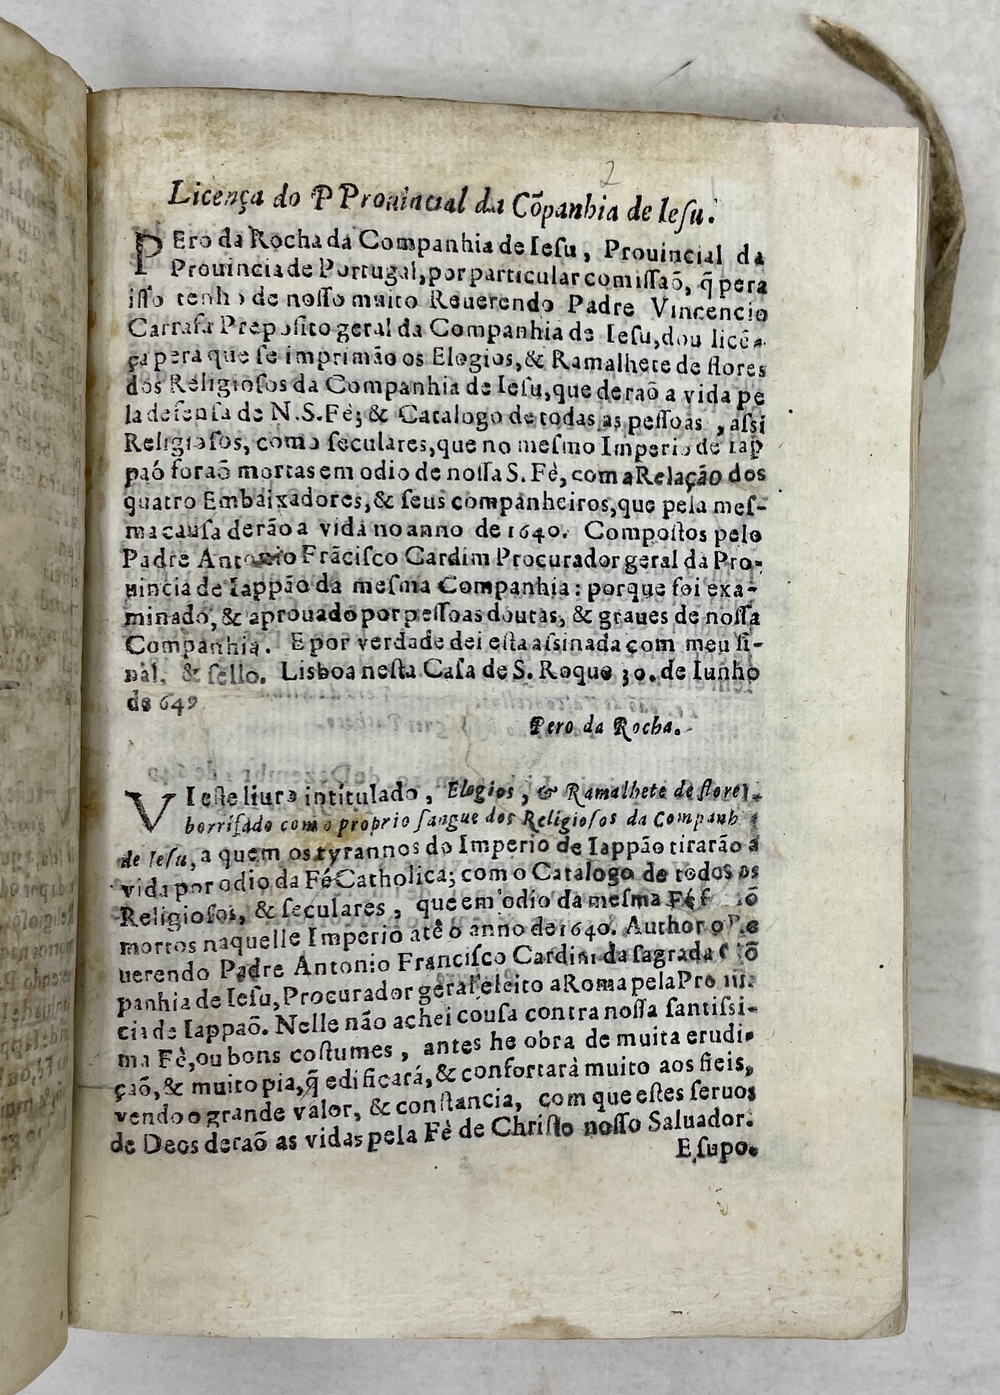 2
Licença do P Prouincial da Cõpanhia de Iesu.
PEro da Rocha da Companhia de Iesu, Prouincial da
Prouincia de Portugal, por particular comissaõ, q̃ pera
isso tenho de nosso muito Reuerendo Padre Vincencio
Carrafa Preposito geral da Companhia de Iesu, dou licē-
ça pera que se imprimão os Elogios, & Ramalhete de flores
dos Religiosos da Companhia de Iesu, que deraõ a vida pe
la defensa de N. S. Fè; & Catalogo de todas as pessoas, assi
Religiosos, como seculares, que no mesmo Imperio de Iap
paó foraõ mortas em odio de nossa S. Fè, com a Relação dos
quatro Embaixadores, & seus companheiros, que pela mes-
ma causa derão a vida no anno de 1640. Compostos pelo
Padre Antonio Frãcisco Cardim Procurador geral da Pro-
uincia de Iappão da mesma Companhia: porque foi exa-
minado, & aprouado por pessoas doutas, & graues de nossa
Companhia. E por verdade dei esta assinada com meu si-
nal, & sello. Lisboa nesta Casa de S. Roque 30. de Iunho
de 649
Pero da Rocha.
VI este liuro intitulado, Elogios, & Ramalhete de flores
borrifado com o proprio sangue dos Religiosos da Companh
de Iesu, a quem os tyrannos do Imperio de Iappão tirarão a
vida por odio da Fé Catholica; com o Catalogo de todos os
Religiosos, & seculares, que em odio da mesma Fé
mortos naquelle Imperio atê o anno de 1640. Author o Re
uerendo Padre Antonio Francisco Cardim da sagrada Cõ
panhia de Iesu, Procurador geral eleito a Roma pela Proui
cia de Iappaõ. Nelle não achei cousa contra nossa santissi-
ma Fè, ou bons costumes, antes he obra de muita erudi-
çaõ, & muito pia, q̃ edificará, & confortarà muito aos fieis,
vendo o grande valor, & constancia, com que estes seruos
de Deos deraõ as vidas pela Fè de Christo nosso Saluador.
E supo-